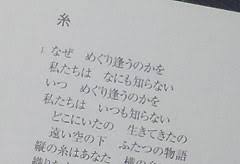 糸
1. なぜ めぐり逢うのかを
私たちは なにも知らない
いつ めぐり逢うのかを
私たちは いつも知らない
どこにいたの 生きてきたの
遠い空の下 ふたつの物語
縦の糸はあなた 横の